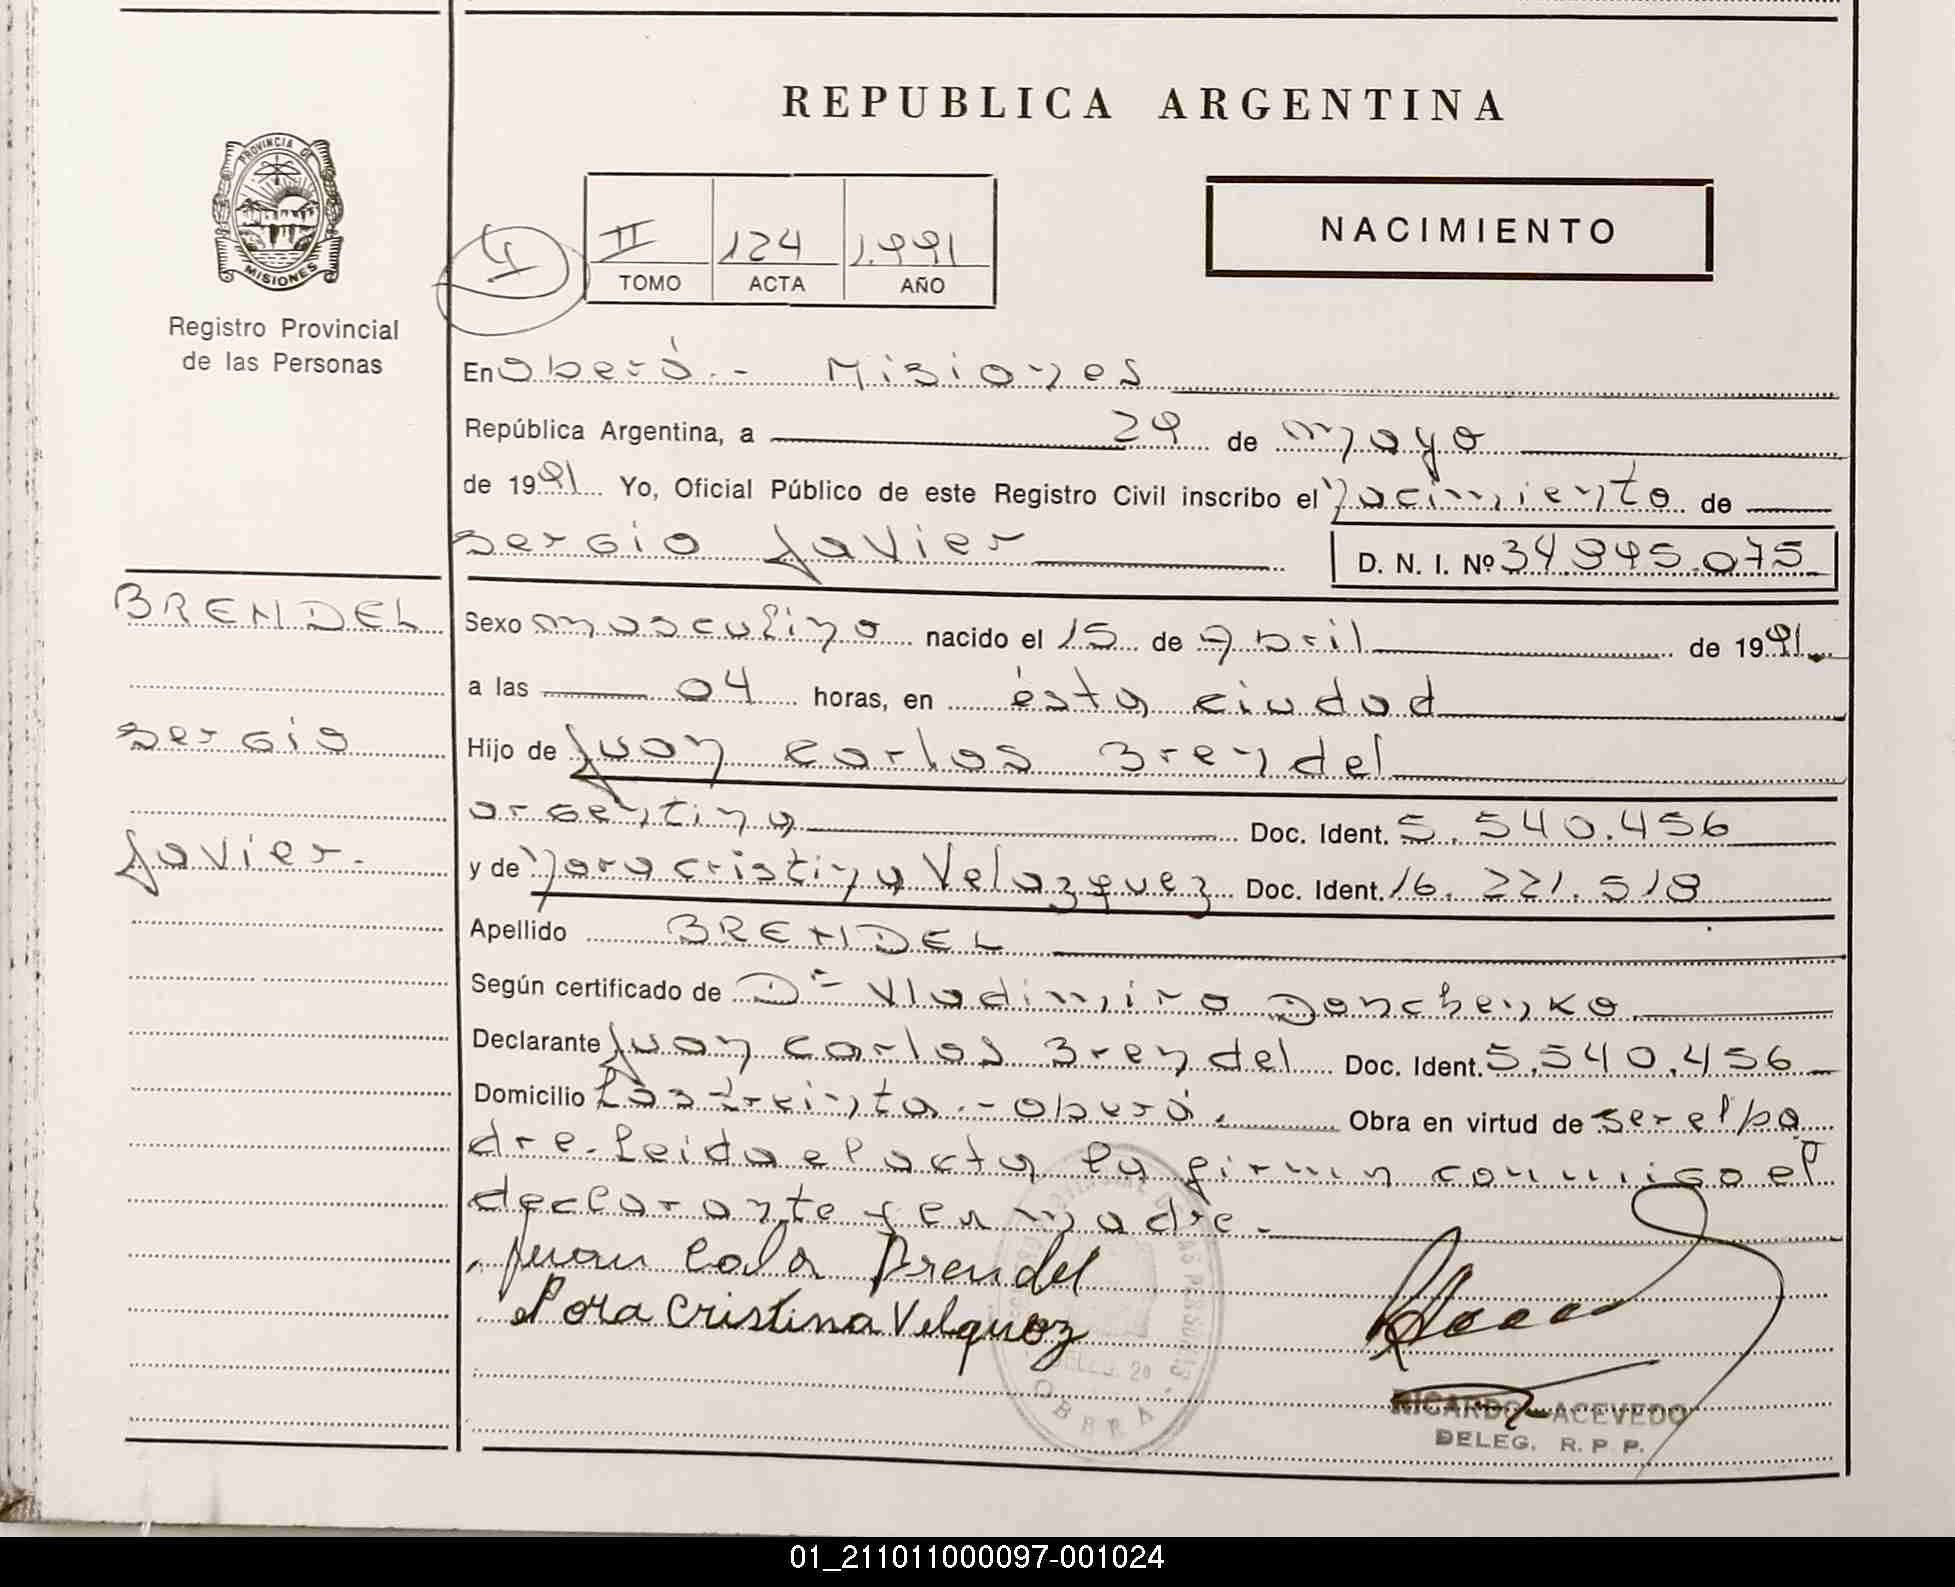 REPUBLICA ARGENTINA
PROVINCIA DE
MISIONES
Registro Provincial
de las Personas
NACIMIENTO
II 124 1.991
TOMO ACTA AÑO
En Oberá.- Misiones
República Argentina, a 29 de mayo
de 1991 Yo, Oficial Público de este Registro Civil inscribo el nacimiento de
Sergio Javier
D. N. I. Nº 34.945.075
BRENDEL
Sergio
Javier.-
Sexo masculino nacido el 15 de Abril de 1991.
a las 04 horas, en ésta ciudad
Hijo de Juan Carlos Brendel
argentina Doc. Ident. 5.540.456
y de Nora Cristina Velazquez Doc. Ident. 16.221.518
Apellido BRENDEL
Según certificado de Dr Vladimiro Donchenko
Declarante Juan Carlos Brendel Doc. Ident. 5.540.456
Domicilio Los treinta.- Oberá. Obra en virtud de ser el pa
dre. Leida el acta la firman conmigo el
declarante y la madre.-
Juan Carlos Brendel
Nora Cristina Velquez
RICARDO ACEVEDO
DELEG. R. P. P.
OBERA
01_211011000097-001024